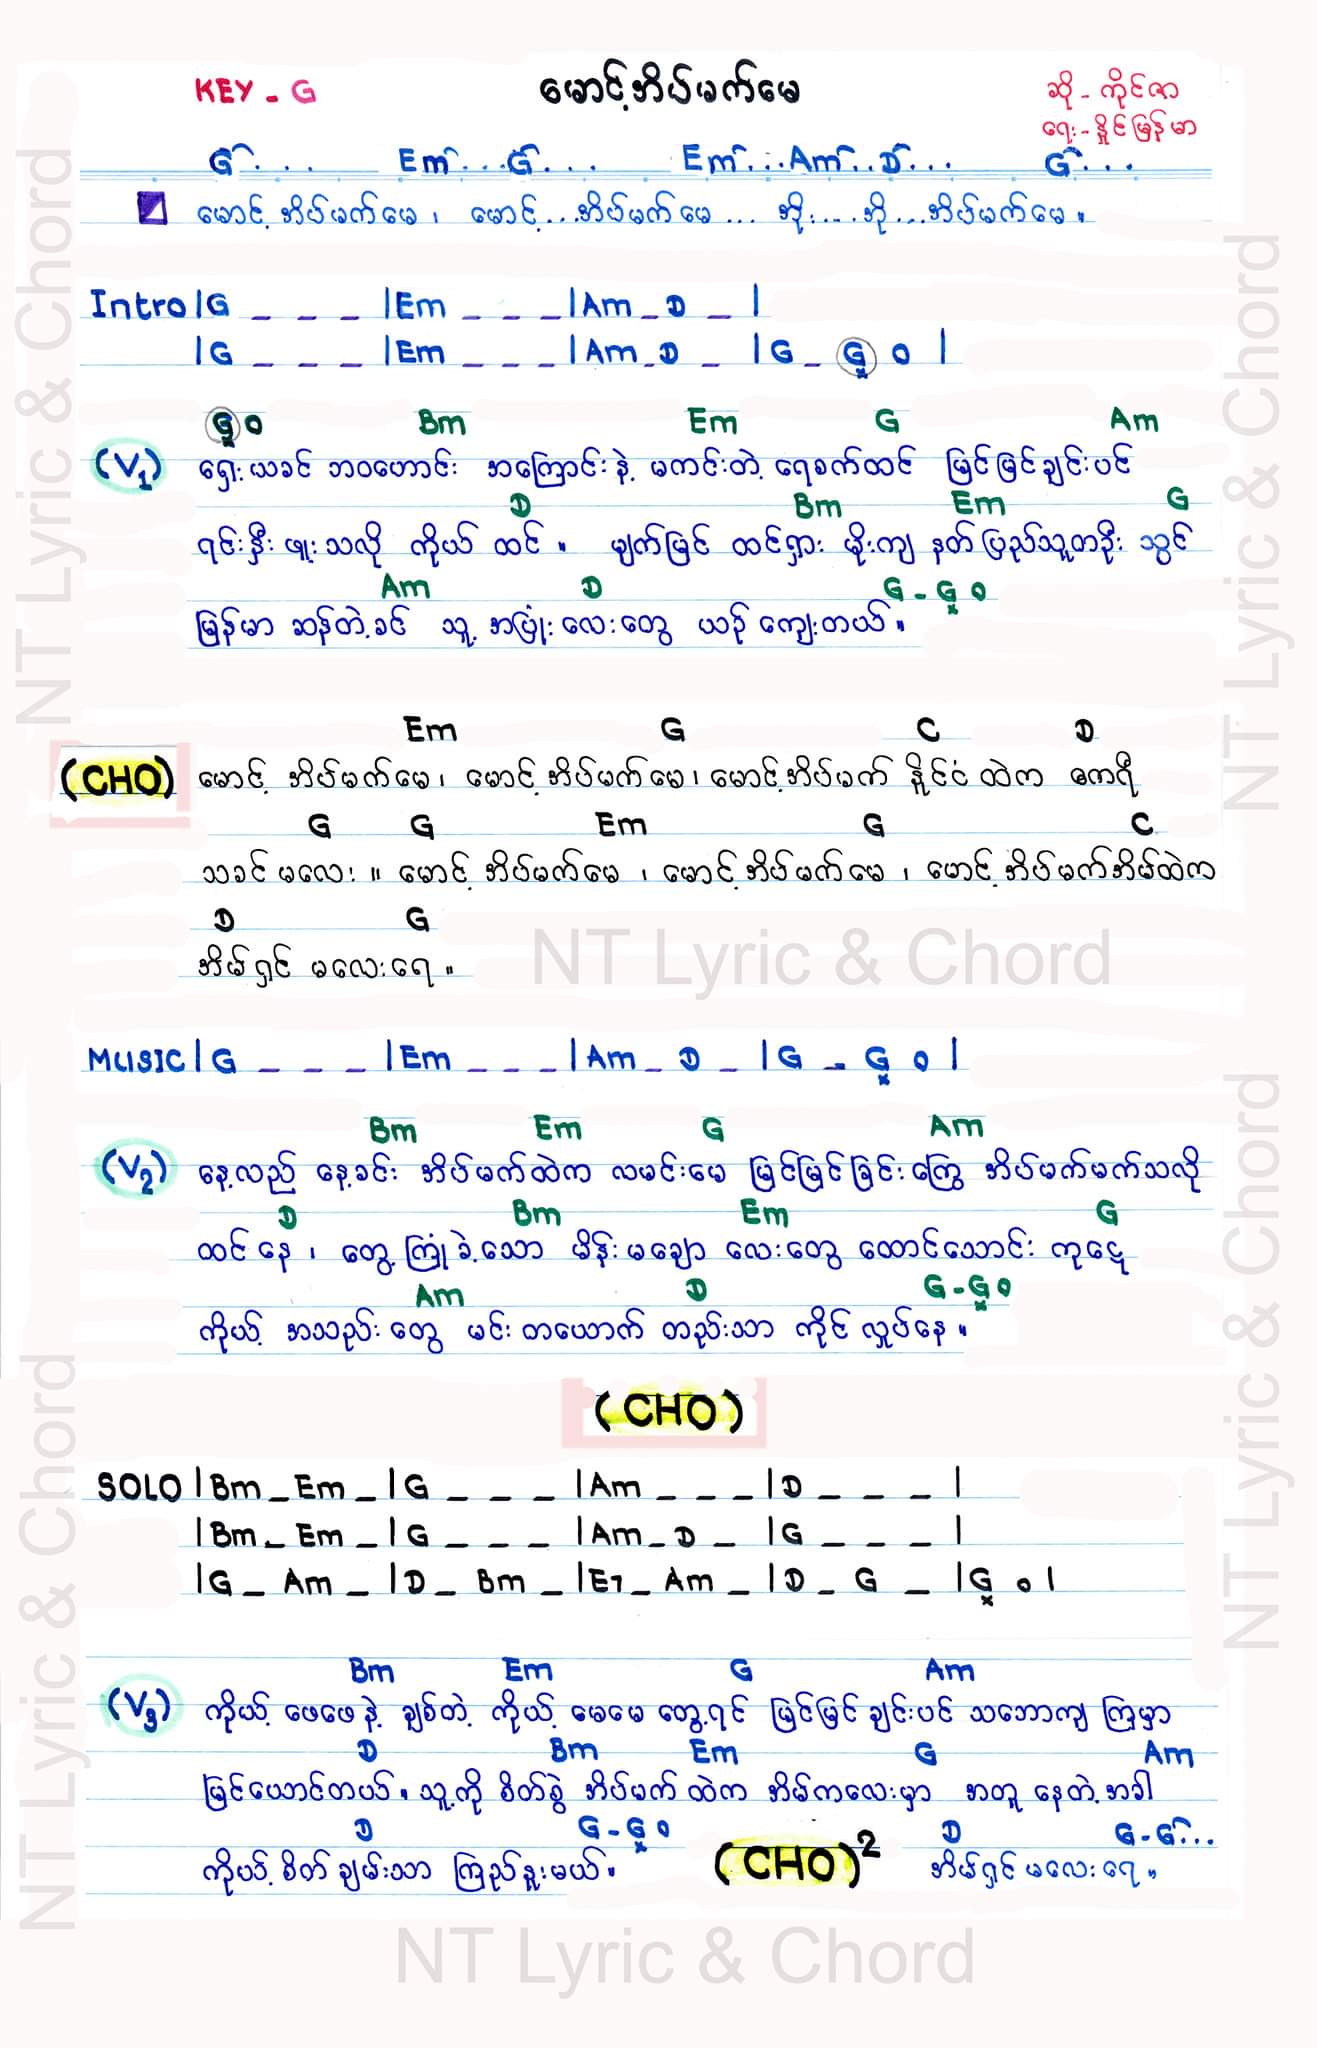 KEY - G မောင့်အိပ်မက်မေ ဆို - ကိုင်ဇာ
ရေး - နှိုင်းမြန်မာ
G... Em...G... Em...Am..D... G...
မောင့် အိပ်မက်မေ ၊ မောင့်...အိပ်မက် မေ... အိုး....အို...အိပ်မက်မေ ။
Intro |G _ _ _ |Em _ _ _ |Am _ D _ |
|G _ _ _ |Em _ _ _ |Am _ D _ |G _ G o |
G o Bm Em G Am
(V1) ရှေးယခင် ဘဝဟောင်း အကြောင်းနဲ့ မကင်းတဲ့ ရေစက်ထင် မြင်မြင်ချင်းပင်
D Bm Em G
ရင်းနှီး ဖူးသလို ကိုယ် ထင် ။ မျက်မြင် ထင်ရှား မိုးကျ နတ်ပြည်သူတဦး သွင်
Am D G - G o
မြန်မာ ဆန်တဲ့ခင် သူ့ အပြုံးလေးတွေ ယဉ် ကျေးတယ် ။
Em G C D
(CHO) မောင့် အိပ်မက်မေ ၊ မောင့် အိပ်မက် မေ ၊ မောင့် အိပ်မက် နိုင်ငံ ထဲက ဧကရီ
G G Em G C
သခင် မလေး ။ မောင့် အိပ်မက်မေ ၊ မောင့် အိပ်မက် မေ ၊ မောင့် အိပ်မက်အိမ်ထဲက
D G
အိမ်ရှင် မလေးရေ ။
NT Lyric & Chord
MUSIC |G _ _ _ |Em _ _ _ |Am _ D _ |G _ G o |
Bm Em G Am
(V2) နေ့လည် နေ့ခင်း အိပ်မက်ထဲက လမင်းမေ မြင်မြင်ခြင်းကြွေ အိပ်မက်မက်သလို
D Bm Em G
ထင် နေ ၊ တွေ့ကြုံခဲ့သော မိန်းမချော လေးတွေ ထောင်သောင်း ကုဋေ
Am D G - G o
ကိုယ့် အသည်းတွေ မင်း တယောက် တည်းသာ ကိုင် လှုပ်နေ ။
(CHO)
SOLO |Bm _ Em _ |G _ _ _ |Am _ _ _ |D _ _ _ |
|Bm _ Em _ |G _ _ _ |Am _ D _ |G _ _ _ |
|G _ Am _ |D _ Bm _ |E7 _ Am _ |D _ G _ |G o |
Bm Em G Am
(V3) ကိုယ့် ဖေဖေနဲ့ ချစ်တဲ့ ကိုယ့် မေမေ တွေ့ရင် မြင်မြင်ချင်းပင် သဘောကျ ကြမှာ
D Bm Em G Am
မြင်ယောင်တယ် ။ သူ့ကို စိတ်စွဲ အိပ်မက် ထဲက အိမ်ကလေးမှာ အတူ နေတဲ့အခါ
D G - G o D G - G...
ကိုယ့် စိတ် ချမ်းသာ ကြည်နူးမယ် ။ (CHO)2 အိမ်ရှင် မလေး ရေ ။
NT Lyric & Chord
NT Lyric & Chord
NT Lyric & Chord
NT Lyric & Chord
NT Lyric & Chord